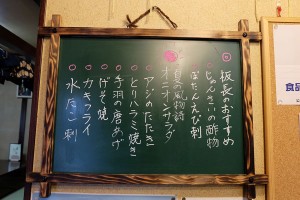 板長のおすすめ
じゅんさいの酢物
ぼたんえび刺
夏の風物詩
オニオンサラダ
アジのたたき
とりハラミ焼き
手羽の唐あげ
げそ焼
カキフライ
水たこ刺
食品